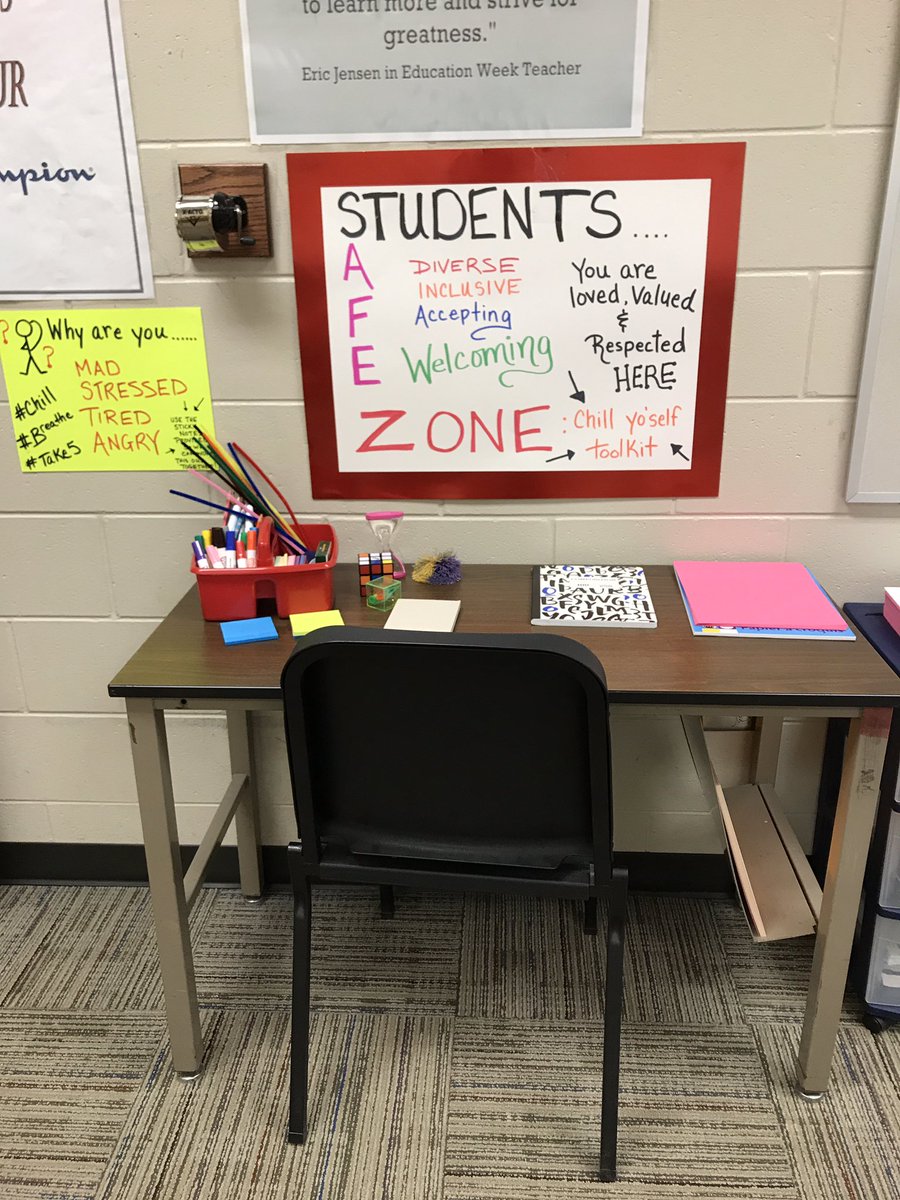 to learn more and strive for
greatness."
Eric Jensen in Education Week Teacher
UR
mpion
X-ACTO
STUDENTS....
A
F
E
ZONE
DIVERSE
INCLUSIVE
Accepting
Welcoming
You are
loved, Valued
&
Respected
HERE
: Chill yo'self
toolkit
? Why are you......
?
MAD
STRESSED
TIRED
ANGRY
#Chill
#Breathe
#Take5
USE THE
STICKY
NOTES